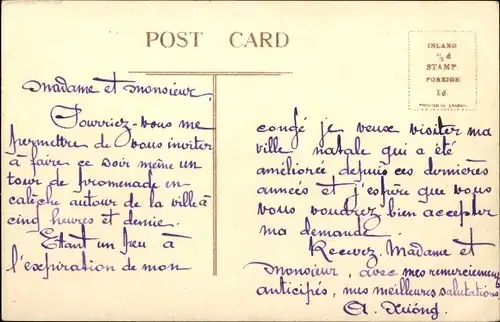 POST CARD
INLAND
½d
STAMP.
FOREIGN
1d.
PRINTED IN SAXONY.
Madame et monsieur,
Pourriez-vous me
permettre de vous inviter
à faire ce soir même un
tour de promenade en
calèche autour de la ville à
cinq heures et demie.
Etant un peu à
l'expiration de mon
congé je veux visiter ma
ville natale qui a été
améliorée depuis ces dernières
années et j'espère que vous
vous voudrez bien accepter
ma demande.
Recevez, Madame et
Monsieur, avec mes remerciements
anticipés, mes meilleures salutations
A.